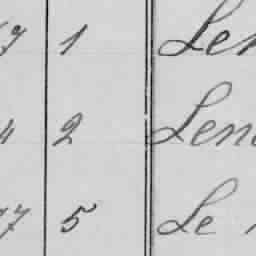 7 1 Len
4 2 Lene
77 5 Le